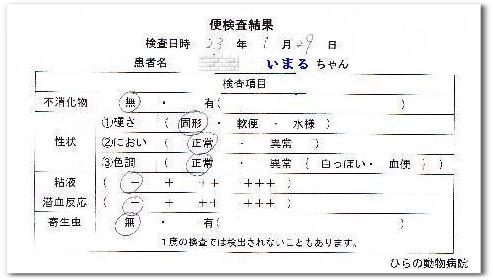 便検査結果
検査日時 23 年 1 月 29 日
患者名 いまる ちゃん
検査項目
不消化物 無 ・ 有( )
性状 ①硬さ ( 固形 ・ 軟便 ・ 水様 )
②におい ( 正常 ・ 異常 )
③色調 ( 正常 ・ 異常 ( 白っぽい・ 血便 ) )
粘液 ( − + ++ +++ )
潜血反応 ( − + ++ +++ )
寄生虫 無 ・ 有( )
1度の検査では検出されないこともあります。
ひらの動物病院